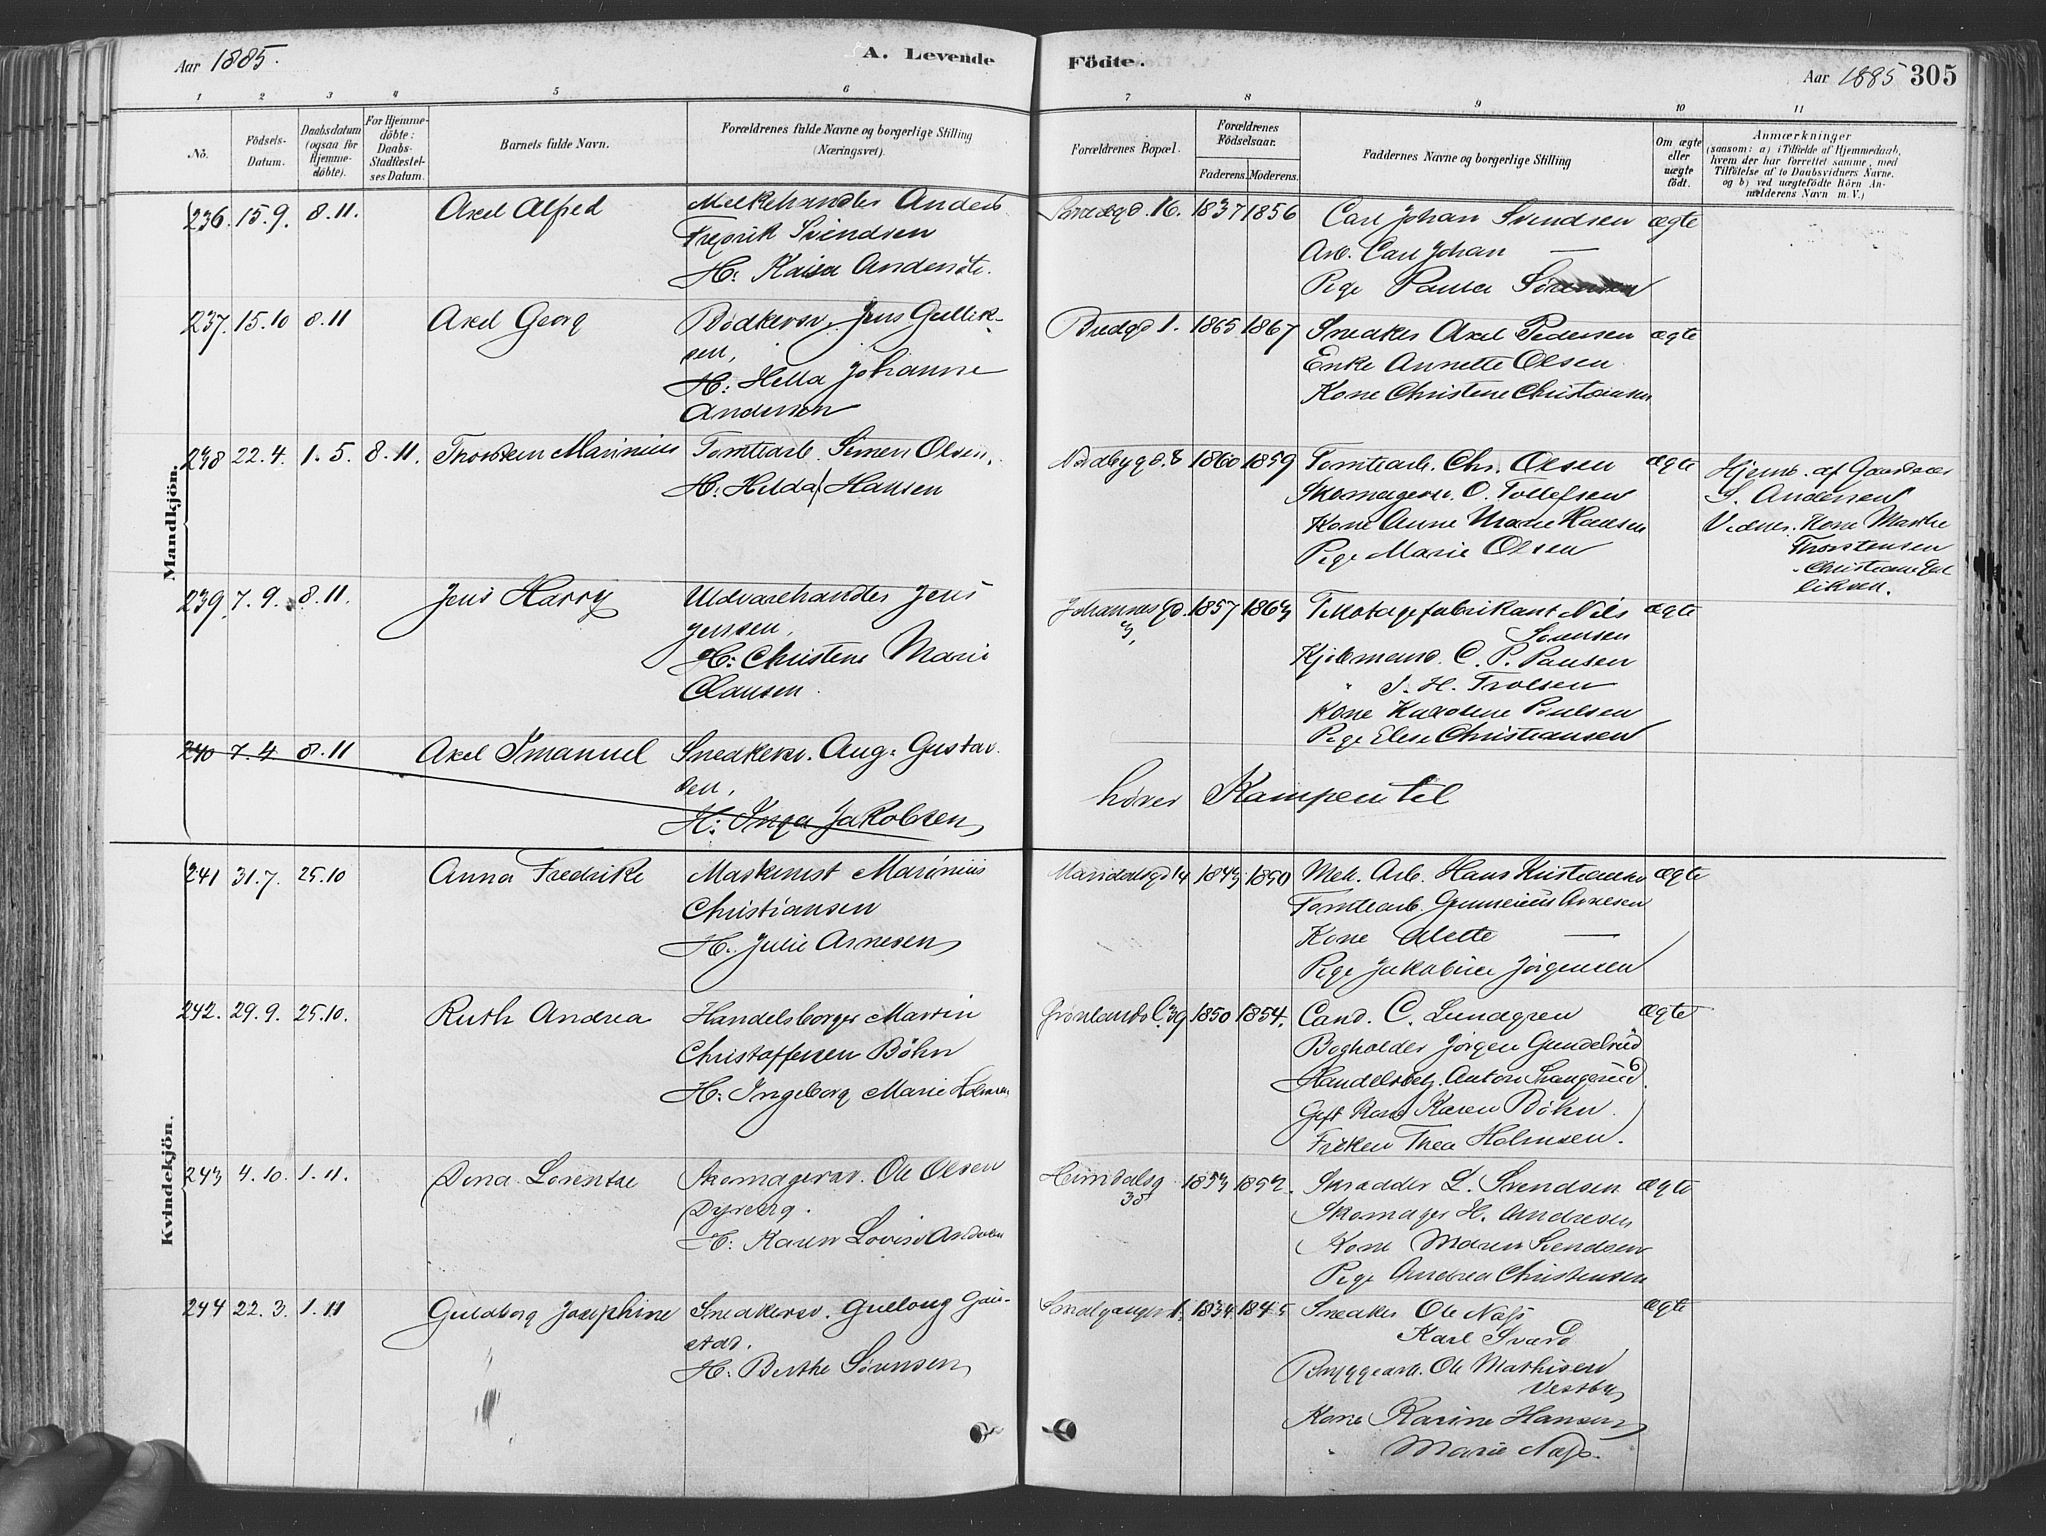 Aar 1885.
A. Levende
Födte.
Aar 1885 305
1 2 3 4 5 6 7 8 9 10 11
No.
Födsels-
Datum.
Daabsdatum
(ogsaa for
Hjemme-
döbte).
For Hjemme-
döbte:
Daabs-
Stadfæstel-
ses Datum.
Barnets fulde Navn.
Forældrenes fulde Navne og borgerlige Stilling
(Næringsvei).
Forældrenes Bopæl.
Forældrenes
Födselsaar.
Faderens. Moderens.
Faddernes Navne og borgerlige Stilling
Om ægte
eller
uægte
födt.
Anmærkninger
(saasom: a) i Tilfælde af Hjemmedaab,
hvem der har forrettet samme, med
Tilföielse af to Daabsvidners Navne.
og b) ved uægtefödte Börn An-
melderens Navn m. V.)
Mandkjön.
236. 15.9. 8.11. Axel Alfred
Melkehandler Anders
Fredrik Svendsen
H: Kaisa Andersdt.
16. 1837 1856
Carl Johan Svendsen ægte
Arb. Carl Johan —
Pige Paula Sörensen
237. 15.10 8.11 Axel Georg
Bödkersv. Jens Gullik-
sen,
H: Hella Johanne
Andersen
Bredgd 1. 1865 1867
Snedker Axel Pedersen ægte
Enke Annette Olsen
Kone Christene Christiansen
238 22.4. 1.5. 8.11. Thorstein Marinius
Tomtearb. Simen Olsen,
H: Hilda Hansen
Nordbygd. 8 1860 1859
Tomtearb. Chr. Olsen ægte
Skomagersv. O. Tollefsen
Kone Anne Marie Hansen
Pige Marie Olsen
Hjemd. af
S. Andersen
Vidner. Kone Marthe
Thorstensen
Christiane Gul
liksen.
239. 7.9. 8.11. Jens Harry
Uldvarehandler Jens
Jensen,
H: Christene Marie
Clausen.
Johannesgd. 3, 1857 1863
Trikotagefabrikant Nils ægte
Sörensen
Kjöbmand. C. P. Paulsen
" S. H. Trolsen
Kone Karoline Poulsen
Pige Elise Christiansen
240 7.4. 8.11 Axel Imanuel
Snedkersv. Aug: Gustav
sen,
H: Inga Jakobsen
hører Kampen til
Kvindekjön.
241 31.7. 25.10 Anna Fredrike
Maskinist Marinius
Christiansen
H. Julie Arnesen
Maridalsgd 14 1843 1850
Mek. Arb. Hans Kristiansen ægte
Tomtearb. Arnesen
Kone Alette —
Pige Jakobine Jörgensen
242. 29.9. 25.10. Ruth Andrea
Handelsborger Martin
Christoffersen Böhn
H: Ingeborg Marie Holmsen
Grönlandsl. 39 1850 1854.
Cand. C. Lundgren ægte
Bogholder Jörgen Gundelsrud
Handelsbetj. Anton
Gift Kone Karen Böhn.
Fröken Thea Holmsen.
243 4.10. 1.11. Dina Lorentse
Skomagersv. Ole Olsen
Dyrberg.
H: Karen Lovise Andersen
Heimdalsg. 35 1853 1852.
Skrædder L. Svendsen ægte
Skomager H. Andresen
Kone Maren Svendsen
Pige Andrea Christensen
244 22.3. 1.11 Guldborg Josephine
Snedkersv. Gullong Gau-
stad.
H. Berthe Sörensen
Smalgangen 1. 1834 1845
Snedker Ole Næss ægte
Karl Svard
Bryggearb. Ole Mathisen
Vestby
Kone Karine Hansen
" Marie Næss.